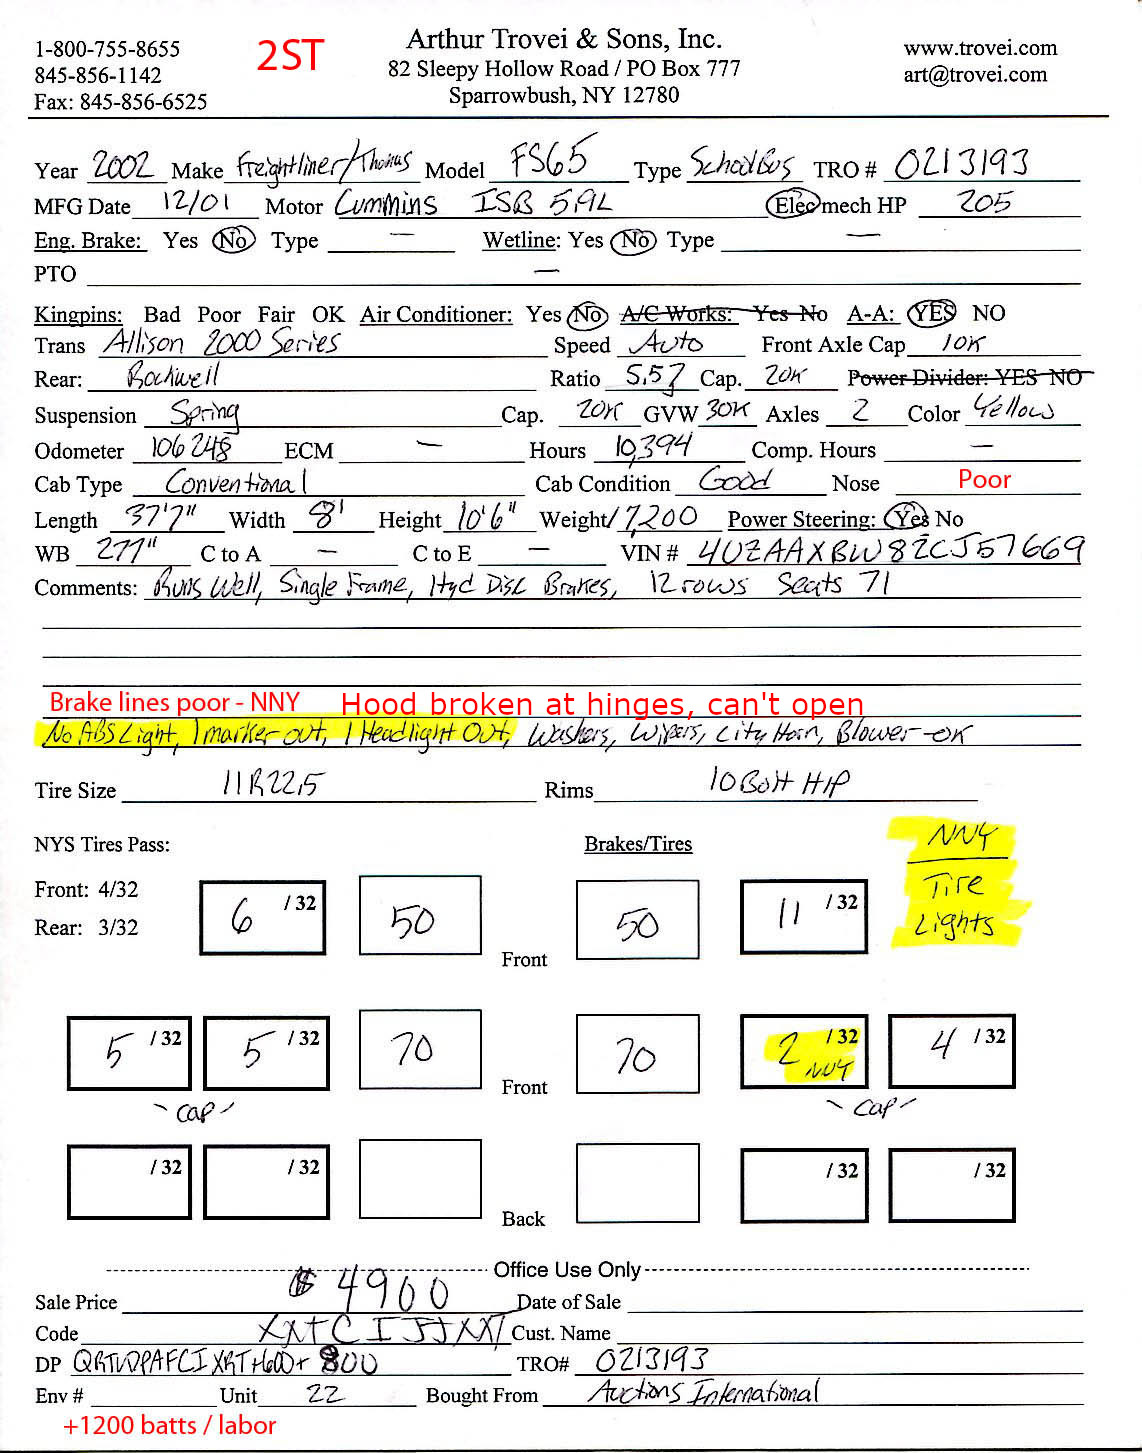 1-800-755-8655 2ST Arthur Trovei & Sons, Inc. www.trovei.com
845-856-1142 82 Sleepy Hollow Road / PO Box 777 art@trovei.com
Fax: 845-856-6525 Sparrowbush, NY 12780
Year 2002 Make Freightliner/Thomas Model FS65 Type SchoolBus TRO # 0213193
MFG Date 12/01 Motor Cummins ISB 5.9L Elec mech HP 205
Eng. Brake: Yes No Type — Wetline: Yes No Type —
PTO —
Kingpins: Bad Poor Fair OK Air Conditioner: Yes No A/C Works: Yes No A-A: YES NO
Trans Allison 2000 Series Speed Auto Front Axle Cap 10K
Rear: Rockwell Ratio 5.57 Cap. 20K Power Divider: YES NO
Suspension Spring Cap. 20K GVW 30K Axles 2 Color Yellow
Odometer 106248 ECM — Hours 10,394 Comp. Hours —
Cab Type Conventional Cab Condition Good Nose Poor
Length 37'7" Width 8' Height 10'6" Weight 17,200 Power Steering: Yes No
WB 277" C to A — C to E — VIN # 4UZAAXBW82CJ57669
Comments: Runs Well, Single Frame, Hyd Disc Brakes, 12 rows Seats 71
Brake lines poor - NNY Hood broken at hinges, can't open
No ABS Light, 1 marker out, 1 Headlight Out, Washers, Wipers, City Horn, Blower-OK
Tire Size 11R22.5 Rims 10 Bolt HP
NYS Tires Pass: Brakes/Tires NNY
Front: 4/32 6 /32 50 50 11 /32 Tire
Rear: 3/32 Lights
Front
5 /32 5 /32 70 70 2 /32 NNY 4 /32
Front
~ cap ~ ~ cap ~
/32 /32 /32 /32
Back
Office Use Only
Sale Price $4900 Date of Sale
Code Cust. Name
DP TRO# 0213193
Env # Unit 22 Bought From Auctions International
+1200 batts / labor